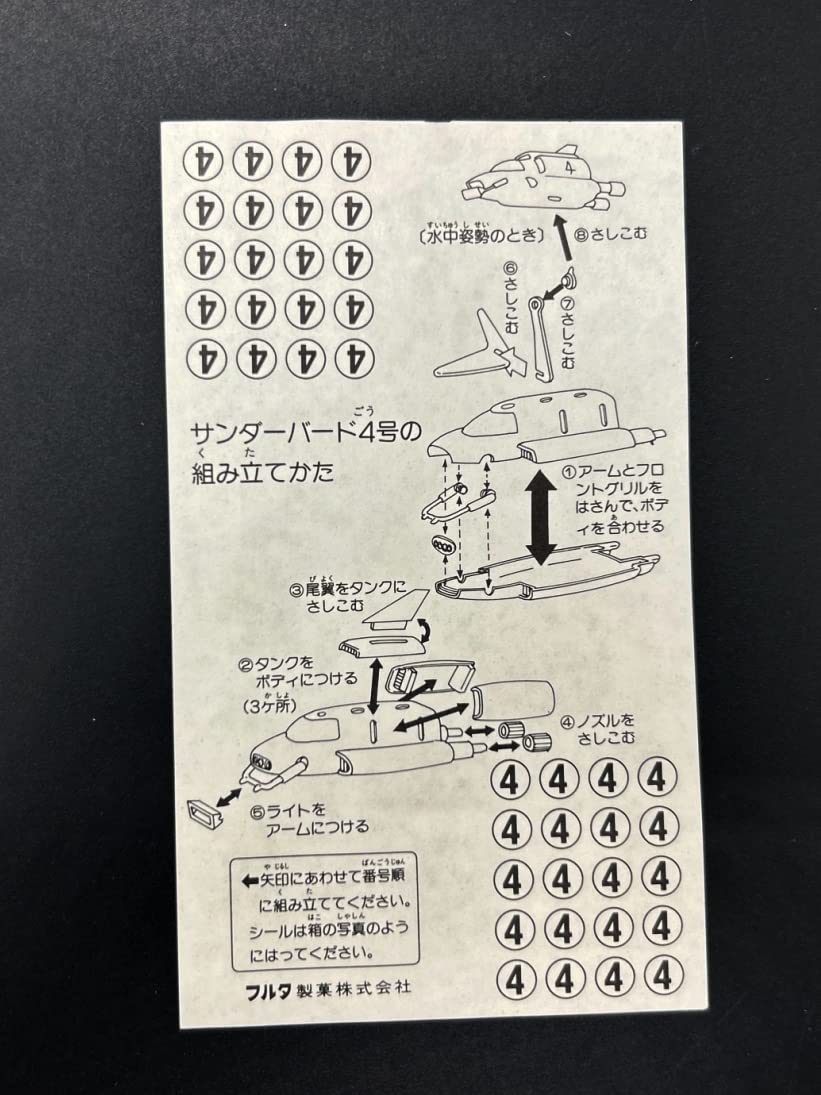 ④ ④ ④ ④
④ ④ ④ ④
④ ④ ④ ④
④ ④ ④ ④
④ ④ ④ ④
4
すいちゅうしせい
〔水中姿勢のとき〕
⑧さしこむ
⑥さしこむ
⑦さしこむ
ごう
サンダーバード4号の
く た
組み立てかた
①アームとフロ
ントグリルを
はさんで、ボデ
あ
ィを合わせる
びよく
③尾翼をタンクに
さしこむ
②タンクを
ボディにつける
かしょ
(3ケ所)
④ノズルを
さしこむ
⑤ライトを
アームにつける
④ ④ ④ ④
④ ④ ④ ④
④ ④ ④ ④
④ ④ ④ ④
④ ④ ④ ④
やじるし ばんごうじゅん
←矢印にあわせて番号順
く た
に組み立ててください。
はこ しゃしん
シールは箱の写真のよう
にはってください。
フルタ製菓株式会社